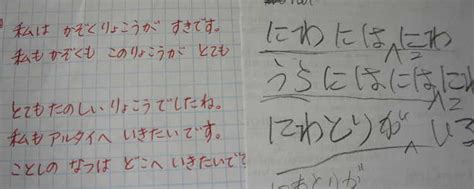 私は かぞくりょこうが すきです。
私も かぞくも このりょこうが とても
とてもたのしい りょこうでしたね。
私も アルタイへ いきたいです。
ことしの なつは どこへ いきたいで
にわにはにわ
うらにはにはにわ
にわとりが いる